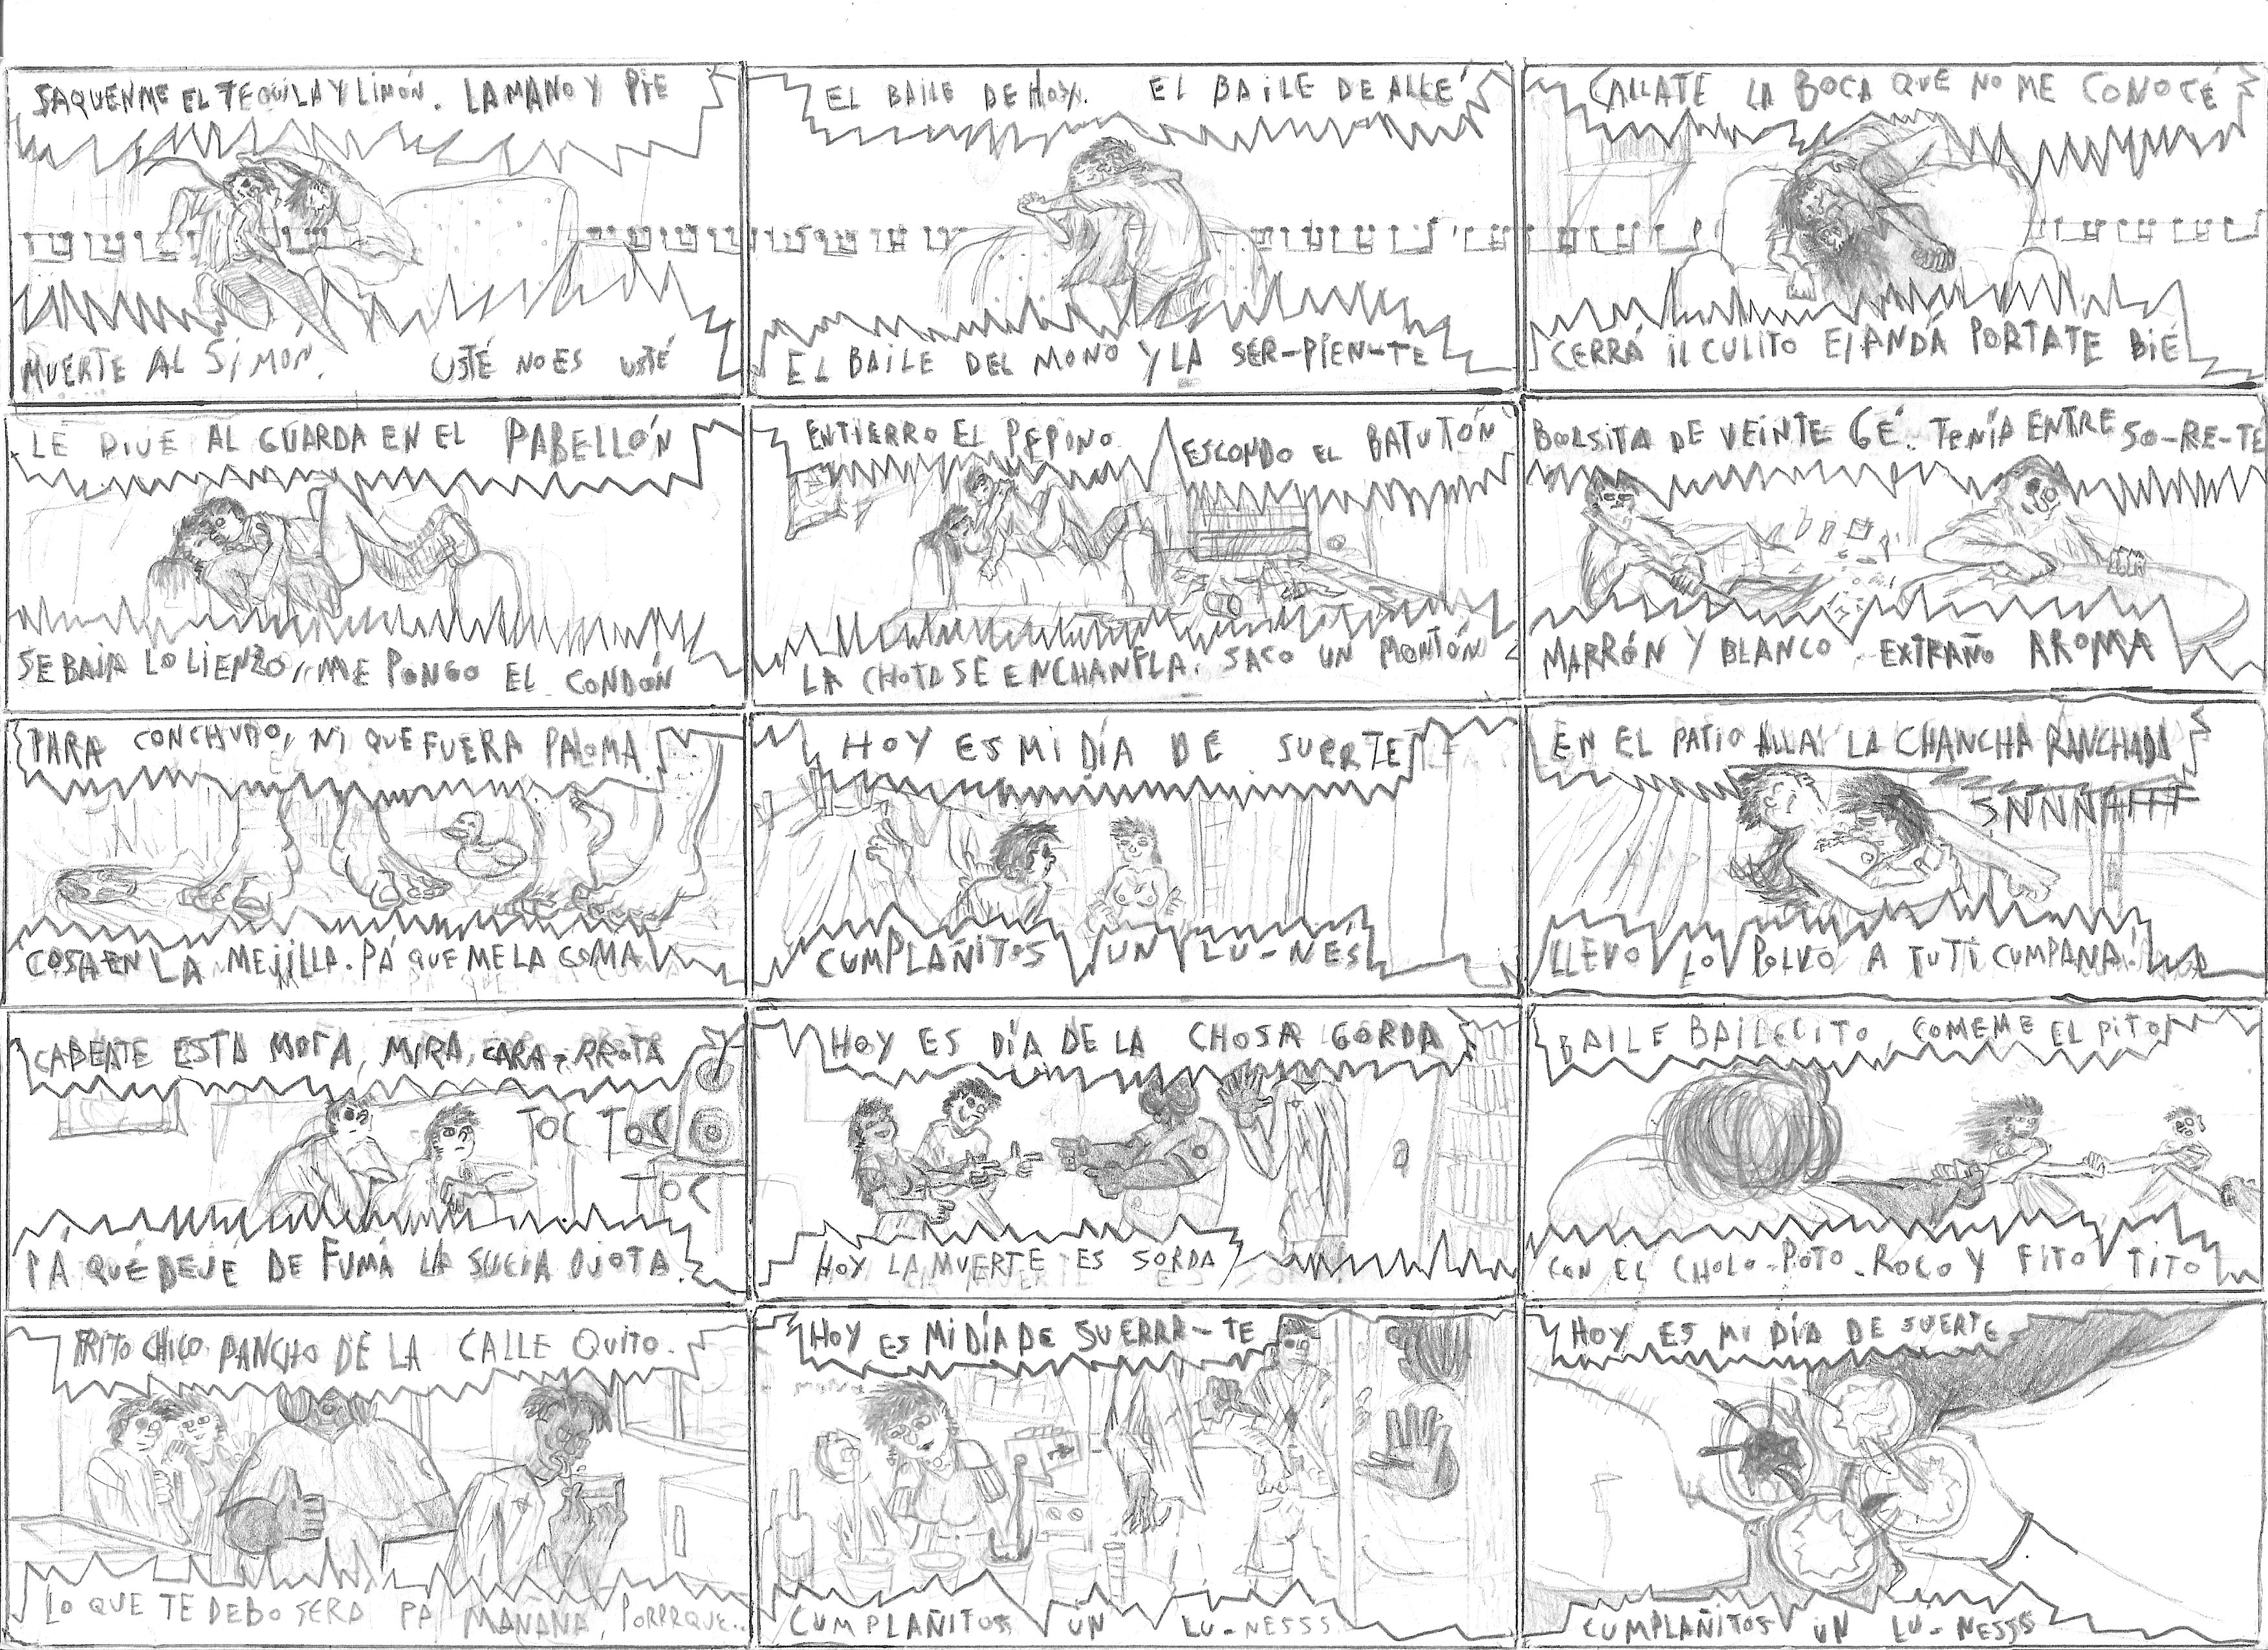 SAQUENME EL TEQUILA Y LIMÓN. LA MANO Y PIE
MUERTE AL SIMÓN. USTÉ NO ES USTÉ
EL BAILE DE HOY. EL BAILE DE ALLÉ
EL BAILE DEL MONO Y LA SER-PIEN-TE
CALLATE LA BOCA QUE NO ME CONOCÉ
CERRÁ IL CULITO E ANDÁ PORTATE BIÉ
LE DIJE AL GUARDA EN EL PABELLÓN
SE BAJA LO LIENZO, ME PONGO EL CONDÓN
ENTIERRO EL PEPINO. ESCONDO EL BATUTÓN
LA CHOTA SE ENCHANFLA. SACO UN MONTÓN
BOLSITA DE VEINTE GÉ. TENÍA ENTRE SO-RE-TE
MARRÓN Y BLANCO. EXTRAÑO AROMA
PARA CONCHUDO, NI QUE FUERA PALOMA
COSA EN LA MEJILLA. PÁ QUE ME LA COMA
HOY ES MI DÍA DE SUERTE
CUMPLAÑITOS UN LU-NES
EN EL PATIO ALLÁ! LA CHANCHA RANCHADA
SNNNAFFF
LLEVO LO POLVO A TUTI CUMPANA!
CABEATE ESTA MOTA, MIRA, CARA RROTA
TOC TOC
TOC
PÁ QUÉ DEJÉ DE FUMÁ LA SUCIA OJOTA.
HOY ES DÍA DE LA CHOSA GORDA
HOY LA MUERTE ES SORDA
BAILE BAILECITO, COMEME EL PITO
CON EL CHOLO. POTO. ROCO Y FITO TITO
FRITO CHICO PANCHO DE LA CALLE QUITO.
LO QUE TE DEBO SERÁ PA MAÑANA, PORRRQUE..
HOY ES MI DÍA DE SUERRR-TE
CUMPLAÑITOS UN LU-NESSS
HOY ES MI DÍA DE SUERTE
CUMPLAÑITOS UN LU-NESSS